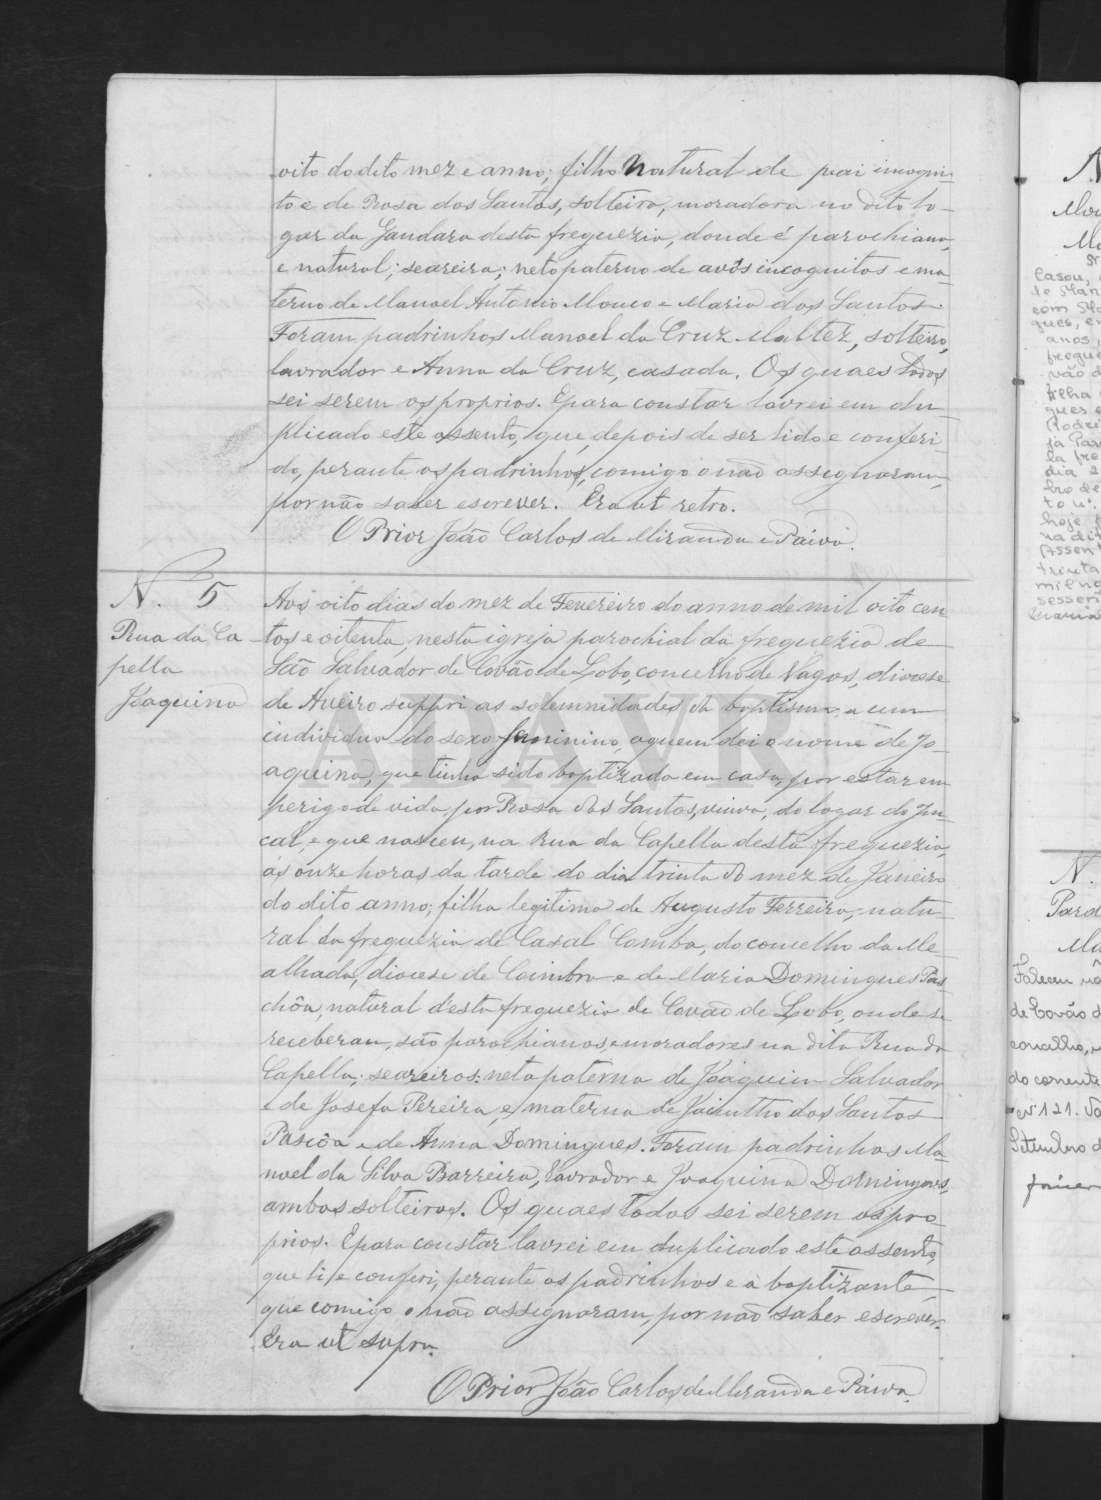 oito do dito mez e anno; filho natural de pai incogni-
to e de Rosa dos Santos, solteira, moradora no dito lo-
gar da Gandara desta freguezia, donde é parochiana,
e natural; seareira; neto paterno de avós incognitos e ma-
terno de Manoel Antonio Mouco e Maria dos Santos.
Foram padrinhos Manoel da Cruz Maltez, solteiro,
lavrador e Anna da Cruz, casada. Os quaes todos
sei serem os proprios. E para constar lavrei em du-
plicado este assento, que, depois de ser lido e conferi-
do, perante os padrinhos, comigo o não assignaram,
por não saber escrever. Era ut retro.
O Prior João Carlos de Miranda e Paiva.
N. 5
Rua da Ca-
pella
Joaquina
Aos oito dias do mez de Fevereiro do anno de mil oito cen-
tos e oitenta, nesta igreja parochial da freguezia de
São Salvador de Covão de Lobo, concelho de Vagos, diocese
de Aveiro suppri as solemnidades do baptismo a um
individuo do sexo feminino, a quem dei o nome de Jo-
aquina, que tinha sido baptizada em casa, por estar em
perigo de vida, por Rosa dos Santos, viuva, do logar do Jun-
cal, e que nasceu, na Rua da Capella desta freguezia,
ás onze horas da tarde do dia trinta do mez de Janeiro
do dito anno; filha legitima de Augusto Ferreira, natu-
ral da freguezia de Casal Comba, do concelho da Me-
alhada, diocese de Coimbra e de Maria Domingues Pas-
chôa, natural d'esta freguezia de Covão de Lobo, onde se
receberam, são parochianos e moradores na dita Rua da
Capella; seareiros; neta paterna de Joaquim Salvador
e de Josefa Pereira, e materna de Jacintho dos Santos
Pascôa e de Anna Domingues. Foram padrinhos Ma-
noel da Silva Barreira, lavrador e Joaquina Domingues,
ambos solteiros. Os quaes todos sei serem os pro-
prios. E para constar lavrei em duplicado este assento,
que li e conferi, perante os padrinhos e a baptizante,
que comigo o não assignaram, por não saber escrever.
Era ut supra.
O Prior João Carlos de Miranda e Paiva.
ADAVR